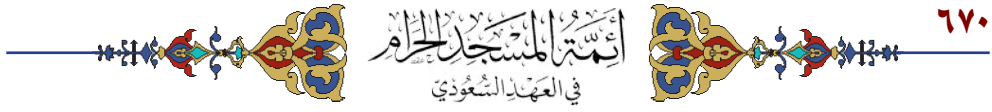 ٦٧٠
أَئِمَّةُ المَسْجِدِ الحَرَامِ
فِي العَهْدِ السُّعُودِيِّ